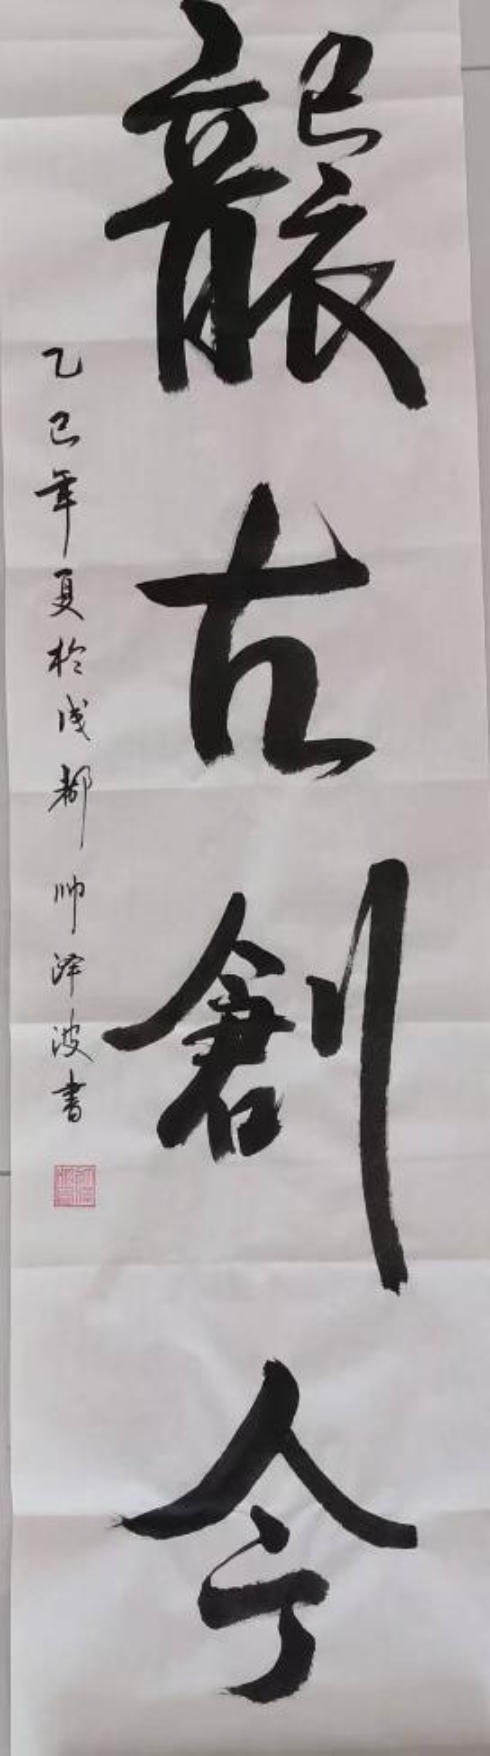 襲古創今
乙巳年夏於成都帅泽波書